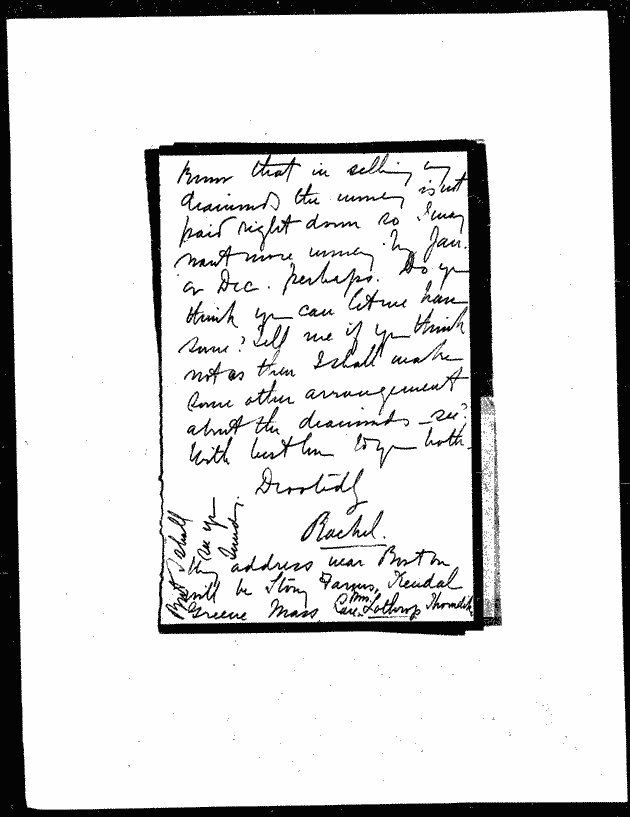 know that in selling my
diamonds the money is not
paid right down so I may
want more money by Jan.
or Dec. perhaps. Do you
think you can let me have
some? Tell me if you think
not as then I shall make
some other arrangement
about the diamonds - see?
With best love to you both -
Devotedly
Rachel.
My address near Boston
will be Stony Farms, Kendal
Greene Mass. Care Mrs. Lothrop Thorndike
But I shall
see you
Sunday.